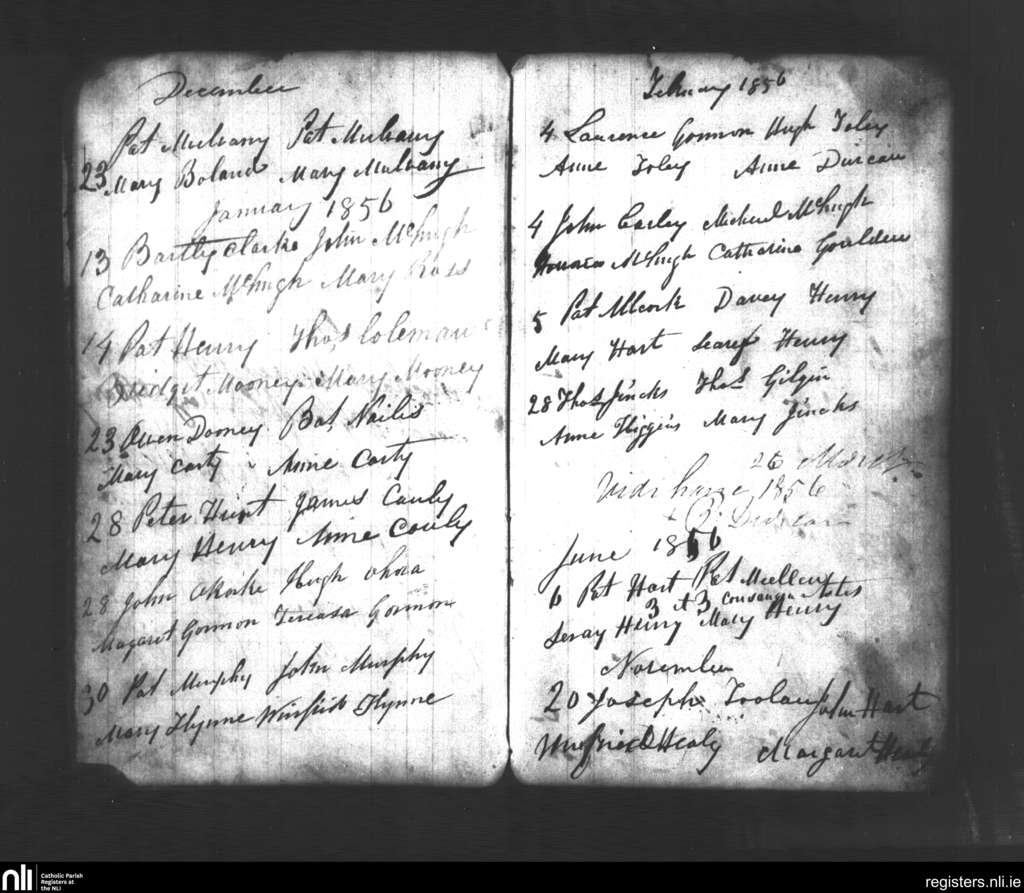 December
Pat Mulvany Pat Mulvany
23 Mary Boland Mary Mulvany
January 1856
13 Bartly Clarke John McHugh
Catharine McHugh Mary Ross
14 Pat Henry Thos Coleman
Bridget Mooney Mary Mooney
23 Owen Dorney Bat
Mary Carty Anne Carty
28 Peter Hunt James Cauly
Mary Henry Anne Cauly
28 John Hugh
Magaret Gormon Gormon
30 Pat Murphy John Murphy
Mary Flynne Flynne
February 1856
4 Laurence Gormon Hugh Foley
Anne Foley Anne Duncan
4 John Carley Michael McHugh
McHugh Catharine
5 Pat Davey Henry
Mary Hart Henry
28 Thos Jincks Thos Gilgin
Anne Higgins Mary Jincks
26 March
Vidi 1856
June 1856
6 Pat Hart Pat Mullen
3 et 3
Henry Mary Henry
November
20 Joseph Toolan John Hart
Healy Margaret Healy
nli Catholic Parish
Registers at
the NLI
registers.nli.ie